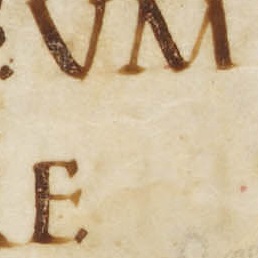 VM
E